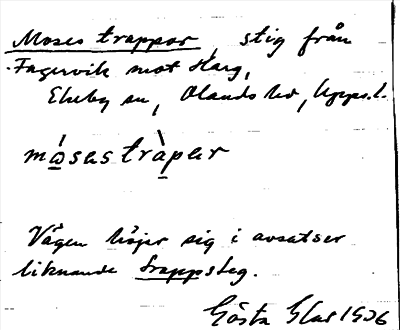 Moses trappor, stig från
Fagervik mot Harg,
Ekeby sn, Olands hd, Upps.l.
mosestràpar
Vägen höjer sig i avsatser
liknande trappsteg.
Gösta 1906